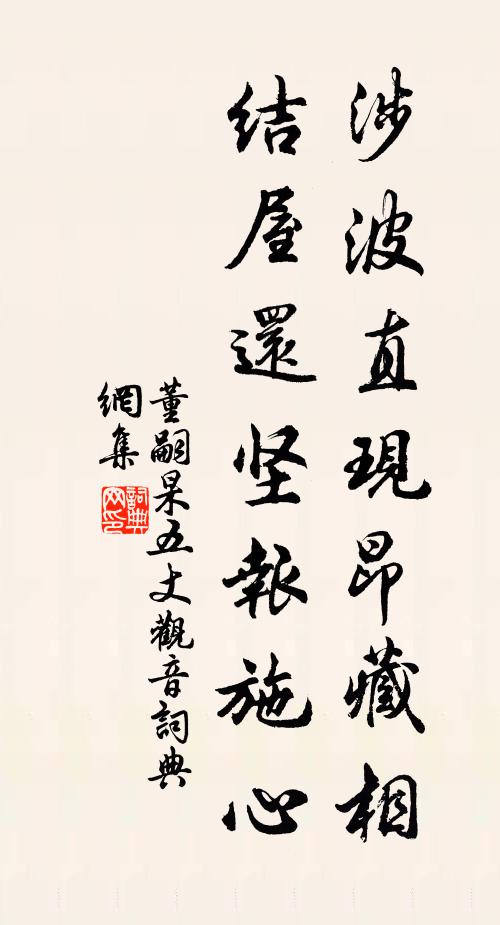 涉波直現昂藏相
结屋還坚報施心
董嗣杲五丈觀音詞典
網集
詞典
网印